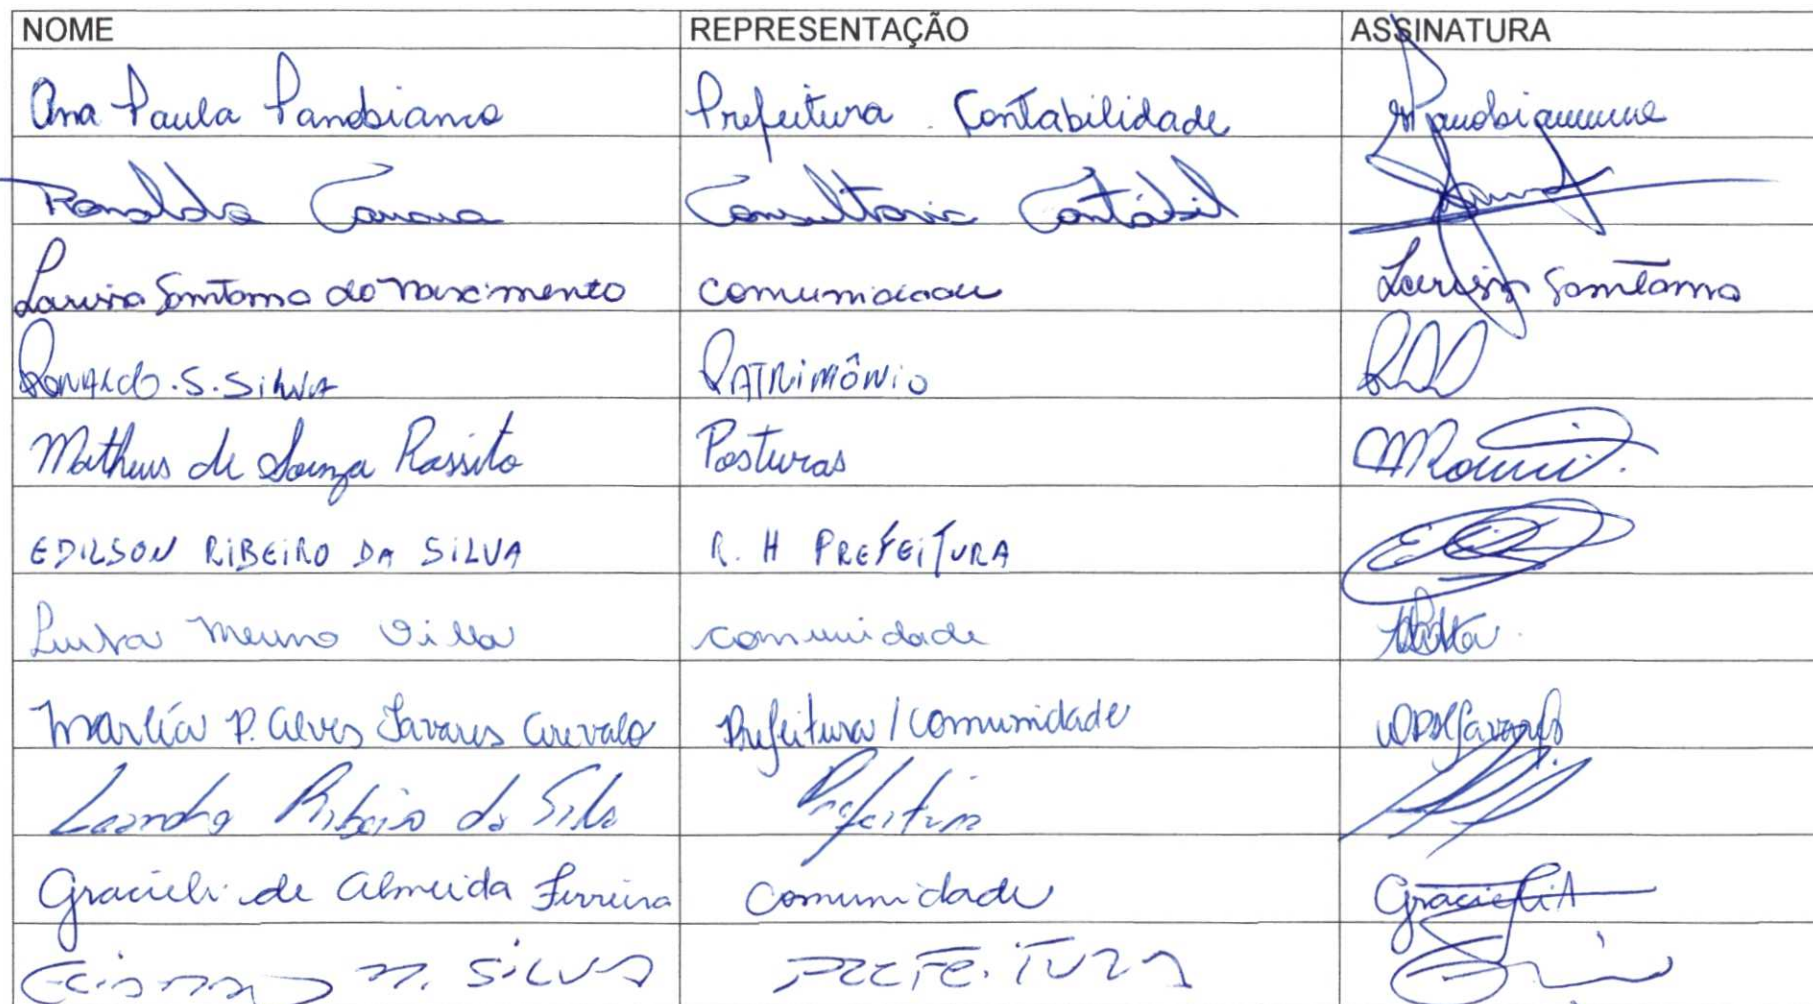 NOME REPRESENTAÇÃO ASSINATURA
Ana Paula Panobianco Prefeitura Contabilidade
Ronaldo Camara Consultoria Contábil
Larissa Santana do Nascimento comunidade Larissa Santana
Ronaldo.S.Silva PATRIMÔNIO
Matheus de Souza Rassito Posturas
EDILSON RIBEIRO DA SILVA R.H PREFEITURA
comunidade
Marlía P. Alves Tavares Arevalo Prefeitura/Comunidade
Leandro Ribeiro da Silva Prefeitura
Gracieli de Almeida Ferreira Comunidade Gracieli A
M. SILVA PREFEITURA